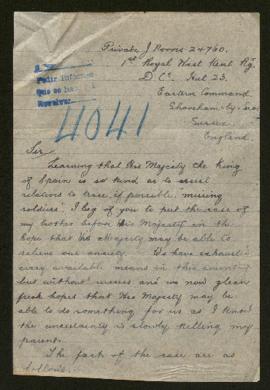 Private J. Rooves 24760.
1st Royal West Kent Rg.
D Co. Hut 23.
Eastern Command
Shoreham-by-Sea
Sussex
England.
Pedir informes
que se ha
Resolver
4041
Sir
Learning that His Majesty the King
of Spain is so kind as to assist
relations to trace, if possible, missing
soldiers, I beg of you to put the case of
my brother before His Majesty in the
hope that His Majesty may be able to
relieve our anxiety. We have exhausted
every available means in this country
but without success and we now glean
fresh hopes that His Majesty may be
able to do something for us as I think
the uncertainty is slowly killing my
parents.
The facts of the case are as
follows: